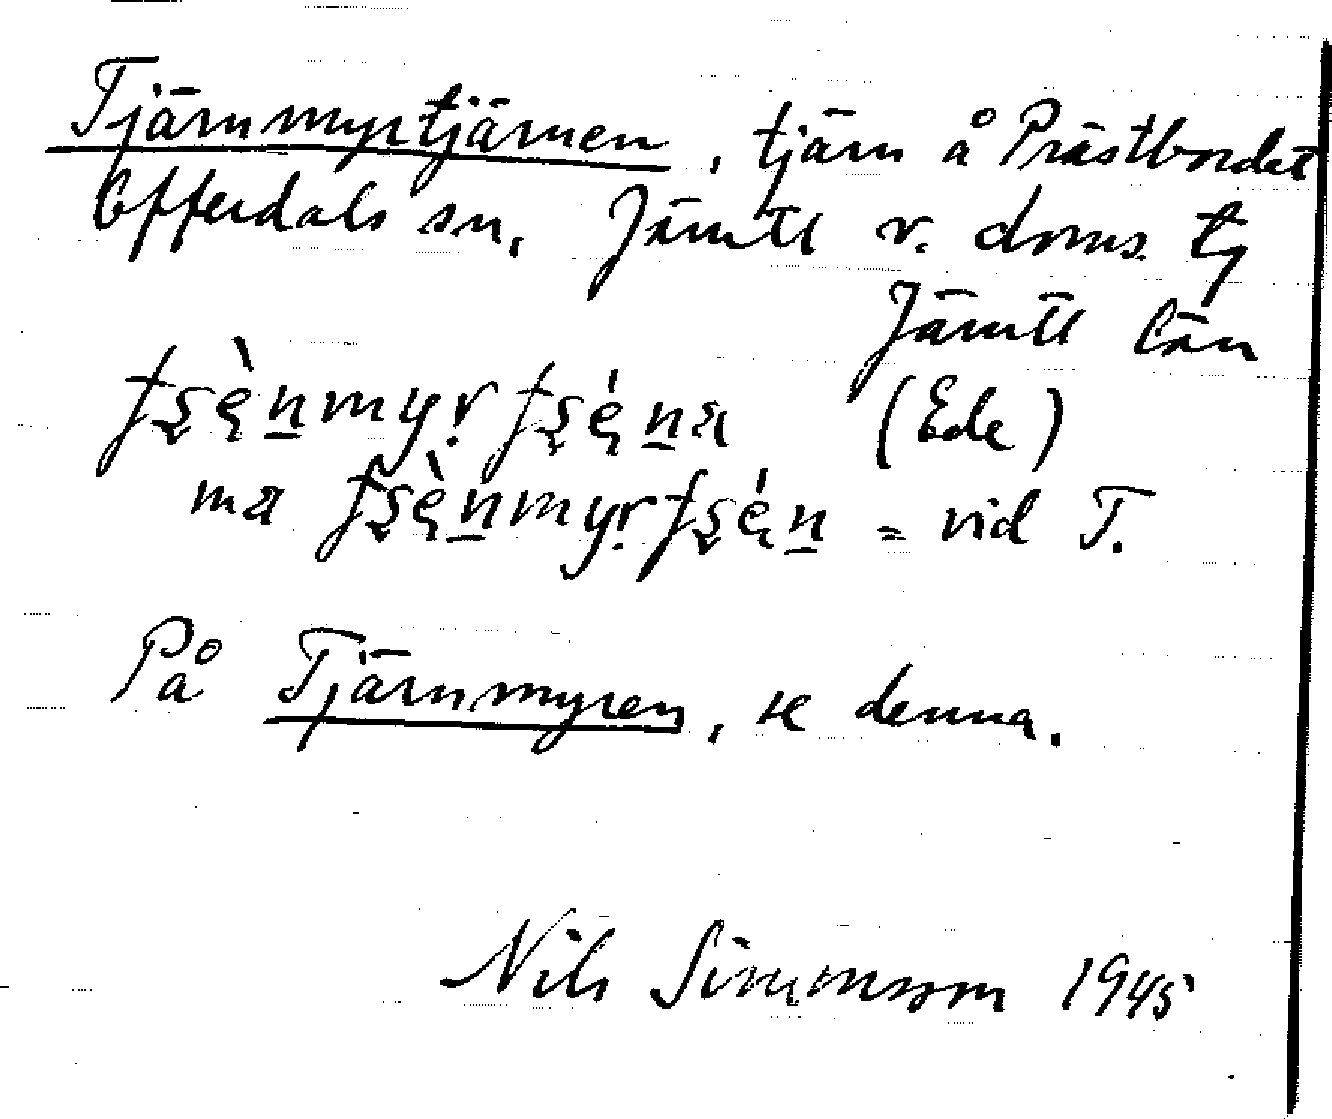 Tjärnmyrtjärnen, tjärn å Prästbordet
Offerdals sn, Jämtl v. doms. tg
Jämtl län
(Ede)
ma = vid T.
På Tjärnmyren, se denna.
Nils Simonsson 1945